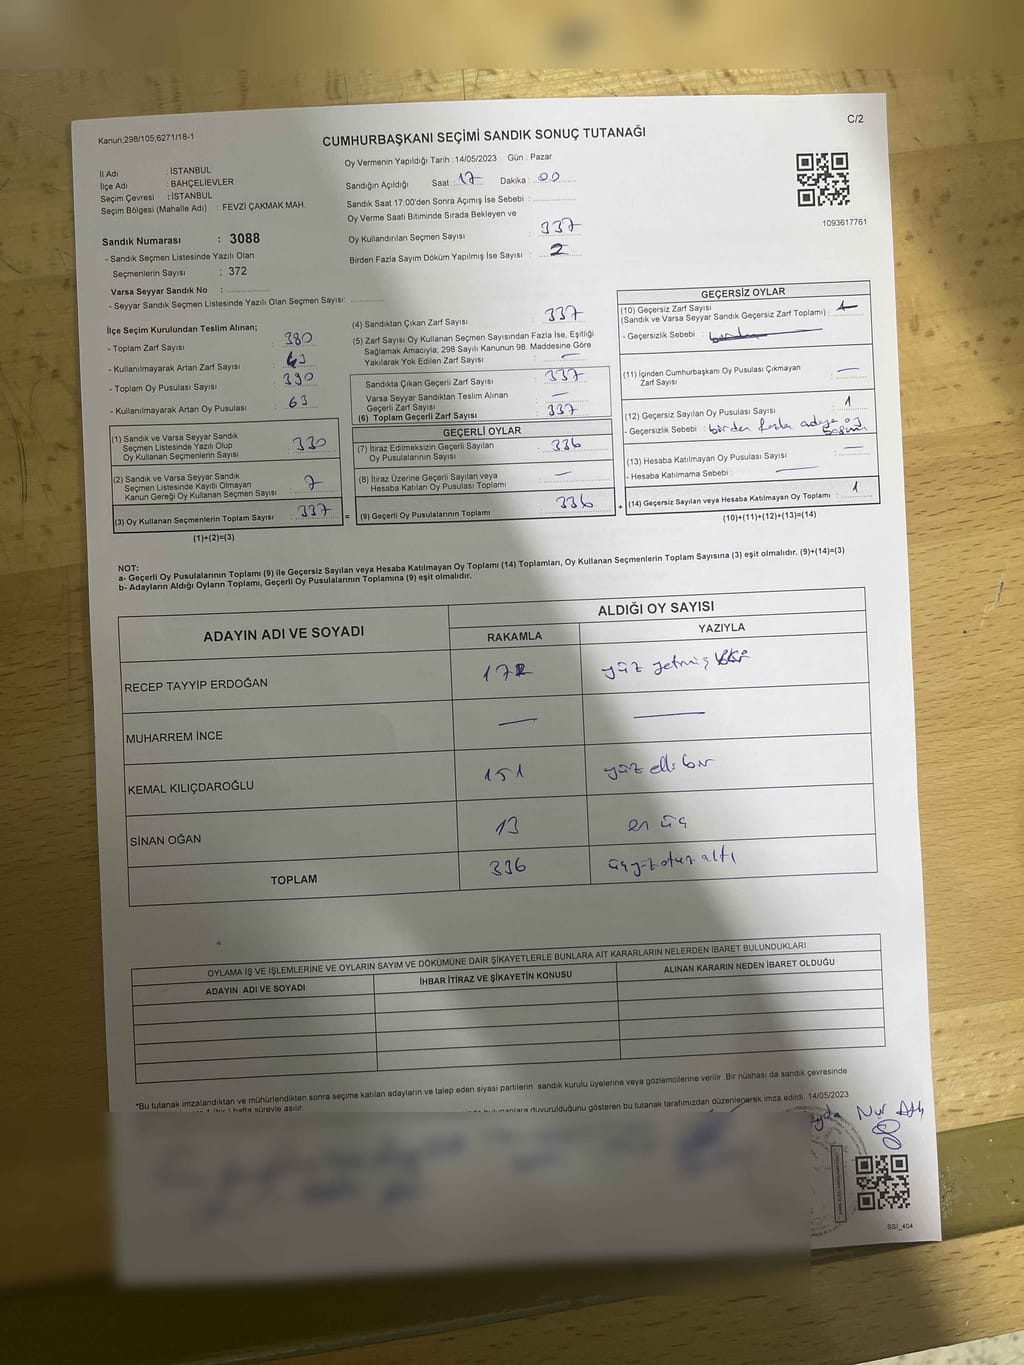 Kanun;298/105,6271/18-1
CUMHURBAŞKANI SEÇİMİ SANDIK SONUÇ TUTANAĞI
C/2
İl Adı : İSTANBUL
İlçe Adı : BAHÇELİEVLER
Seçim Çevresi : İSTANBUL
Seçim Bölgesi (Mahalle Adı) : FEVZİ ÇAKMAK MAH.
Sandık Numarası : 3088
- Sandık Seçmen Listesinde Yazılı Olan
Seçmenlerin Sayısı : 372
Varsa Seyyar Sandık No :
- Seyyar Sandık Seçmen Listesinde Yazılı Olan Seçmen Sayısı:
Oy Vermenin Yapıldığı Tarih :14/05/2023 Gün : Pazar
Sandığın Açıldığı Saat 17 Dakika : 00
Sandık Saat 17:00'den Sonra Açımış İse Sebebi :
Oy Verme Saati Bitiminde Sırada Bekleyen ve
Oy Kullandırılan Seçmen Sayısı : 337
Birden Fazla Sayım Döküm Yapılmış İse Sayısı : 2
1093617761
İlçe Seçim Kurulundan Teslim Alınan;
- Toplam Zarf Sayısı : 380
- Kullanılmayarak Artan Zarf Sayısı : 43
- Toplam Oy Pusulası Sayısı : 390
- Kullanılmayarak Artan Oy Pusulası : 63
(1) Sandık ve Varsa Seyyar Sandık
Seçmen Listesinde Yazılı Olup
Oy Kullanan Seçmenlerin Sayısı : 330
(2) Sandık ve Varsa Seyyar Sandık
Seçmen Listesinde Kayıtlı Olmayan
Kanun Gereği Oy Kullanan Seçmen Sayısı : 7
(3) Oy Kullanan Seçmenlerin Toplam Sayısı : 337
(1)+(2)=(3)
=
(4) Sandıktan Çıkan Zarf Sayısı : 337
(5) Zarf Sayısı Oy Kullanan Seçmen Sayısından Fazla İse, Eşitliği
Sağlamak Amacıyla; 298 Sayılı Kanunun 98. Maddesine Göre
Yakılarak Yok Edilen Zarf Sayısı : —
Sandıkta Çıkan Geçerli Zarf Sayısı : 337
Varsa Seyyar Sandıktan Teslim Alınan
Geçerli Zarf Sayısı : —
(6) Toplam Geçerli Zarf Sayısı : 337
GEÇERLİ OYLAR
(7) İtiraz Edilmeksizin Geçerli Sayılan
Oy Pusulasının Sayısı : 336
(8) İtiraz Üzerine Geçerli Sayılan veya
Hesaba Katılan Oy Pusulası Toplamı : —
(9) Geçerli Oy Pusulalarının Toplamı : 336
+
GEÇERSİZ OYLAR
(10) Geçersiz Zarf Sayısı
(Sandık ve Varsa Seyyar Sandık Geçersiz Zarf Toplamı) :
- Geçersizlik Sebebi :
(11) İçinden Cumhurbaşkanı Oy Pusulası Çıkmayan
Zarf Sayısı : —
(12) Geçersiz Sayılan Oy Pusulası Sayısı : 1
- Geçersizlik Sebebi : birden fazla adaya oy
(13) Hesaba Katılmayan Oy Pusulası Sayısı : —
- Hesaba Katılmama Sebebi : —
(14) Geçersiz Sayılan veya Hesaba Katılmayan Oy Toplamı : 1
(10)+(11)+(12)+(13)=(14)
NOT:
a- Geçerli Oy Pusulalarının Toplamı (9) ile Geçersiz Sayılan veya Hesaba Katılmayan Oy Toplamı (14) Toplamları, Oy Kullanan Seçmenlerin Toplam Sayısına (3) eşit olmalıdır. (9)+(14)=(3)
b- Adayların Aldığı Oyların Toplamı, Geçerli Oy Pusulalarının Toplamına (9) eşit olmalıdır.
ADAYIN ADI VE SOYADI
ALDIĞI OY SAYISI
RAKAMLA YAZIYLA
RECEP TAYYİP ERDOĞAN 172 yüz yetmiş
MUHARREM İNCE — —
KEMAL KILIÇDAROĞLU 151 yüz elli bir
SİNAN OĞAN 13 on üç
TOPLAM 336 üçyüz otuz altı
OYLAMA İŞ VE İŞLEMLERİNE VE OYLARIN SAYIM VE DÖKÜMÜNE DAİR ŞİKAYETLERLE BUNLARA AİT KARARLARIN NELERDEN İBARET BULUNDUKLARI
ADAYIN ADI VE SOYADI İHBAR İTİRAZ VE ŞİKAYETİN KONUSU ALINAN KARARIN NEDEN İBARET OLDUĞU
*Bu tutanak imzalandıktan ve mühürlendikten sonra seçime katılan adayların ve talep eden siyasi partilerin sandık kurulu üyelerine veya gözlemcilerine verilir. Bir nüshası da sandık çevresinde
1 (bir) hafta süreyle asılır.
duyurulduğunu gösteren bu tutanak tarafımızdan düzenlenerek imza edildi. 14/05/2023
Nur
SSI_404